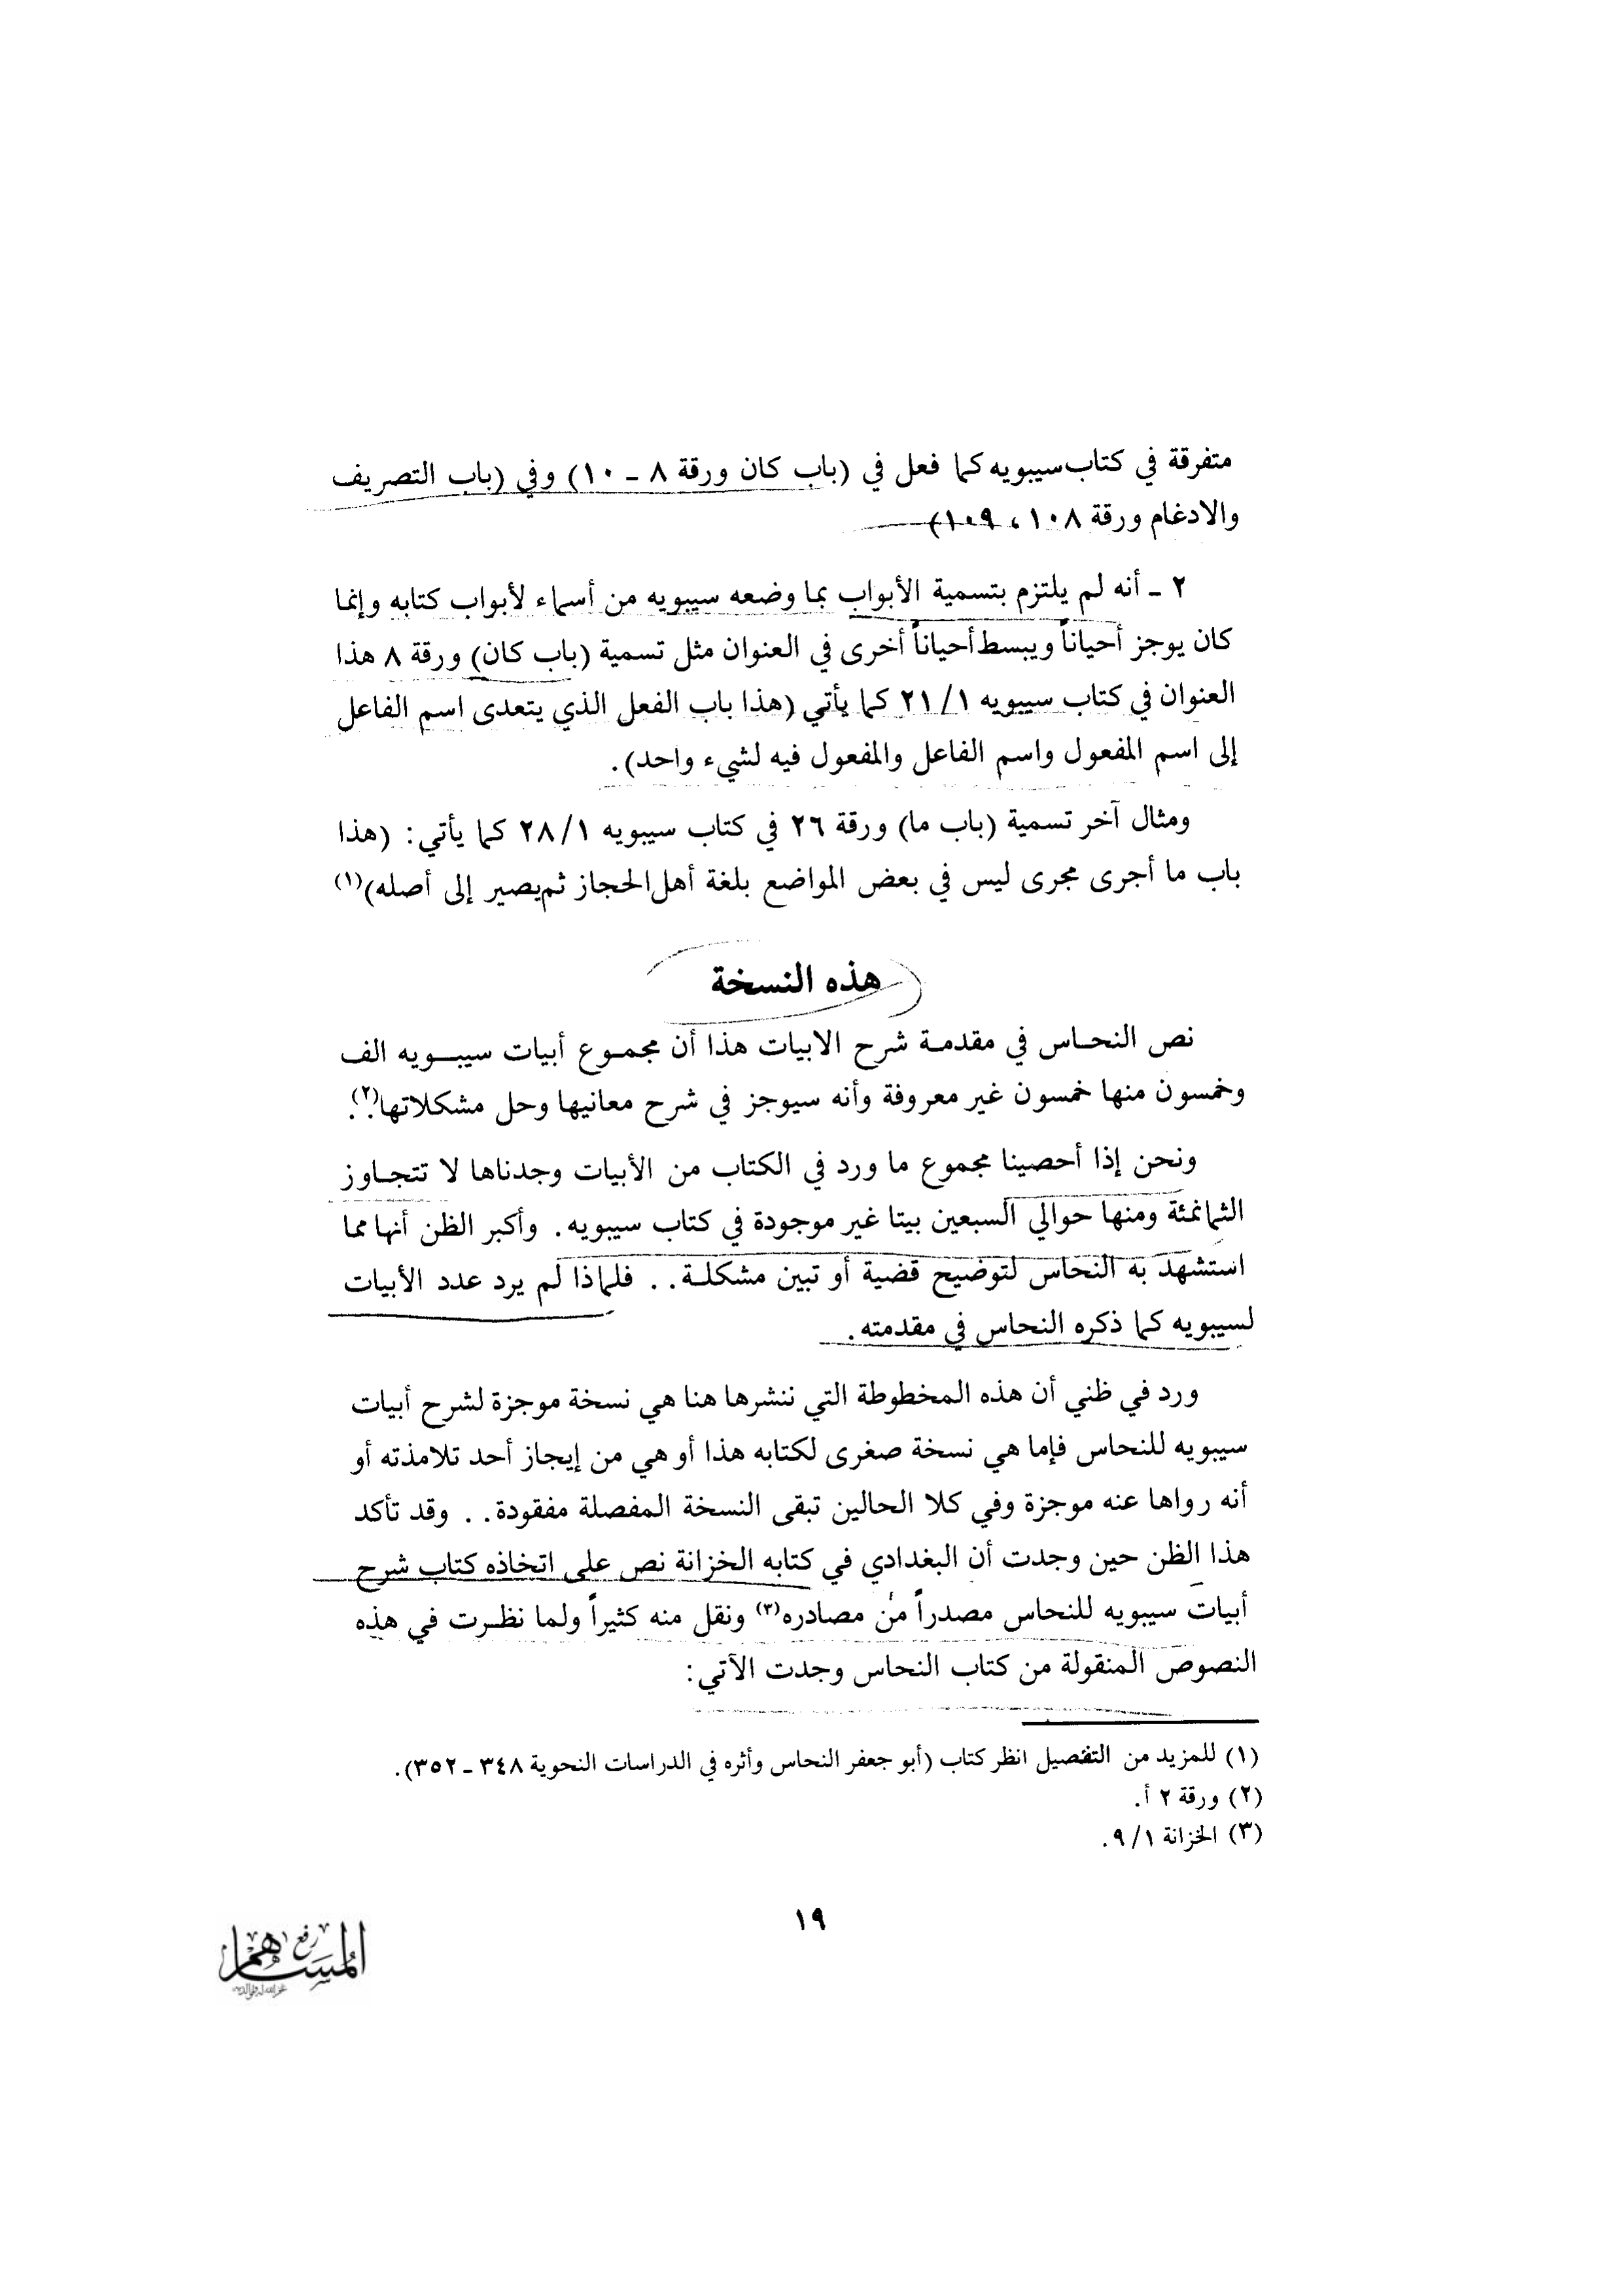 متفرقة في كتاب سيبويه كما فعل في (باب كان ورقة ٨ ـ ١٠) وفي (باب التصريف
والادغام ورقة ١٠٨ ، ١٠٩)
٢ ـ أنه لم يلتزم بتسمية الأبواب بما وضعه سيبويه من أسماء لأبواب كتابه وإنما
كان يوجز أحياناً ويبسط أحياناً أخرى في العنوان مثل تسمية (باب كان) ورقة ٨ هذا
العنوان في كتاب سيبويه ٢١/١ كما يأتي (هذا باب الفعل الذي يتعدى اسم الفاعل
إلى اسم المفعول واسم الفاعل والمفعول فيه لشيء واحد).
ومثال آخر تسمية (باب ما) ورقة ٢٦ في كتاب سيبويه ٢٨/١ كما يأتي: (هذا
باب ما أجرى مجرى ليس في بعض المواضع بلغة أهل الحجاز ثم يصير إلى أصله)(١)
هذه النسخة
نص النحاس في مقدمة شرح الابيات هذا أن مجموع أبيات سيبويه الف
وخمسون منها خمسون غير معروفة وأنه سيوجز في شرح معانيها وحل مشكلاتها(٢).
ونحن إذا أحصينا مجموع ما ورد في الكتاب من الأبيات وجدناها لا تتجاوز
الثمانمئة ومنها حوالي السبعين بيتا غير موجودة في كتاب سيبويه. وأكبر الظن أنها مما
استشهد به النحاس لتوضيح قضية أو تبين مشكلة.. فلماذا لم يرد عدد الأبيات
لسيبويه كما ذكره النحاس في مقدمته.
ورد في ظني أن هذه المخطوطة التي ننشرها هنا هي نسخة موجزة لشرح أبيات
سيبويه للنحاس فإما هي نسخة صغرى لكتابه هذا أو هي من إيجاز أحد تلامذته أو
أنه رواها عنه موجزة وفي كلا الحالين تبقى النسخة المفصلة مفقودة.. وقد تأكد
هذا الظن حين وجدت أن البغدادي في كتابه الخزانة نص على اتخاذه كتاب شرح
أبيات سيبويه للنحاس مصدراً من مصادره(٣) ونقل منه كثيراً ولما نظرت في هذه
النصوص المنقولة من كتاب النحاس وجدت الآتي:
(١) للمزيد من التفصيل انظر كتاب (أبو جعفر النحاس وأثره في الدراسات النحوية ٣٤٨ ـ ٣٥٢).
(٢) ورقة ٢ أ.
(٣) الخزانة ٩/١.
١٩
رفع
المساهم